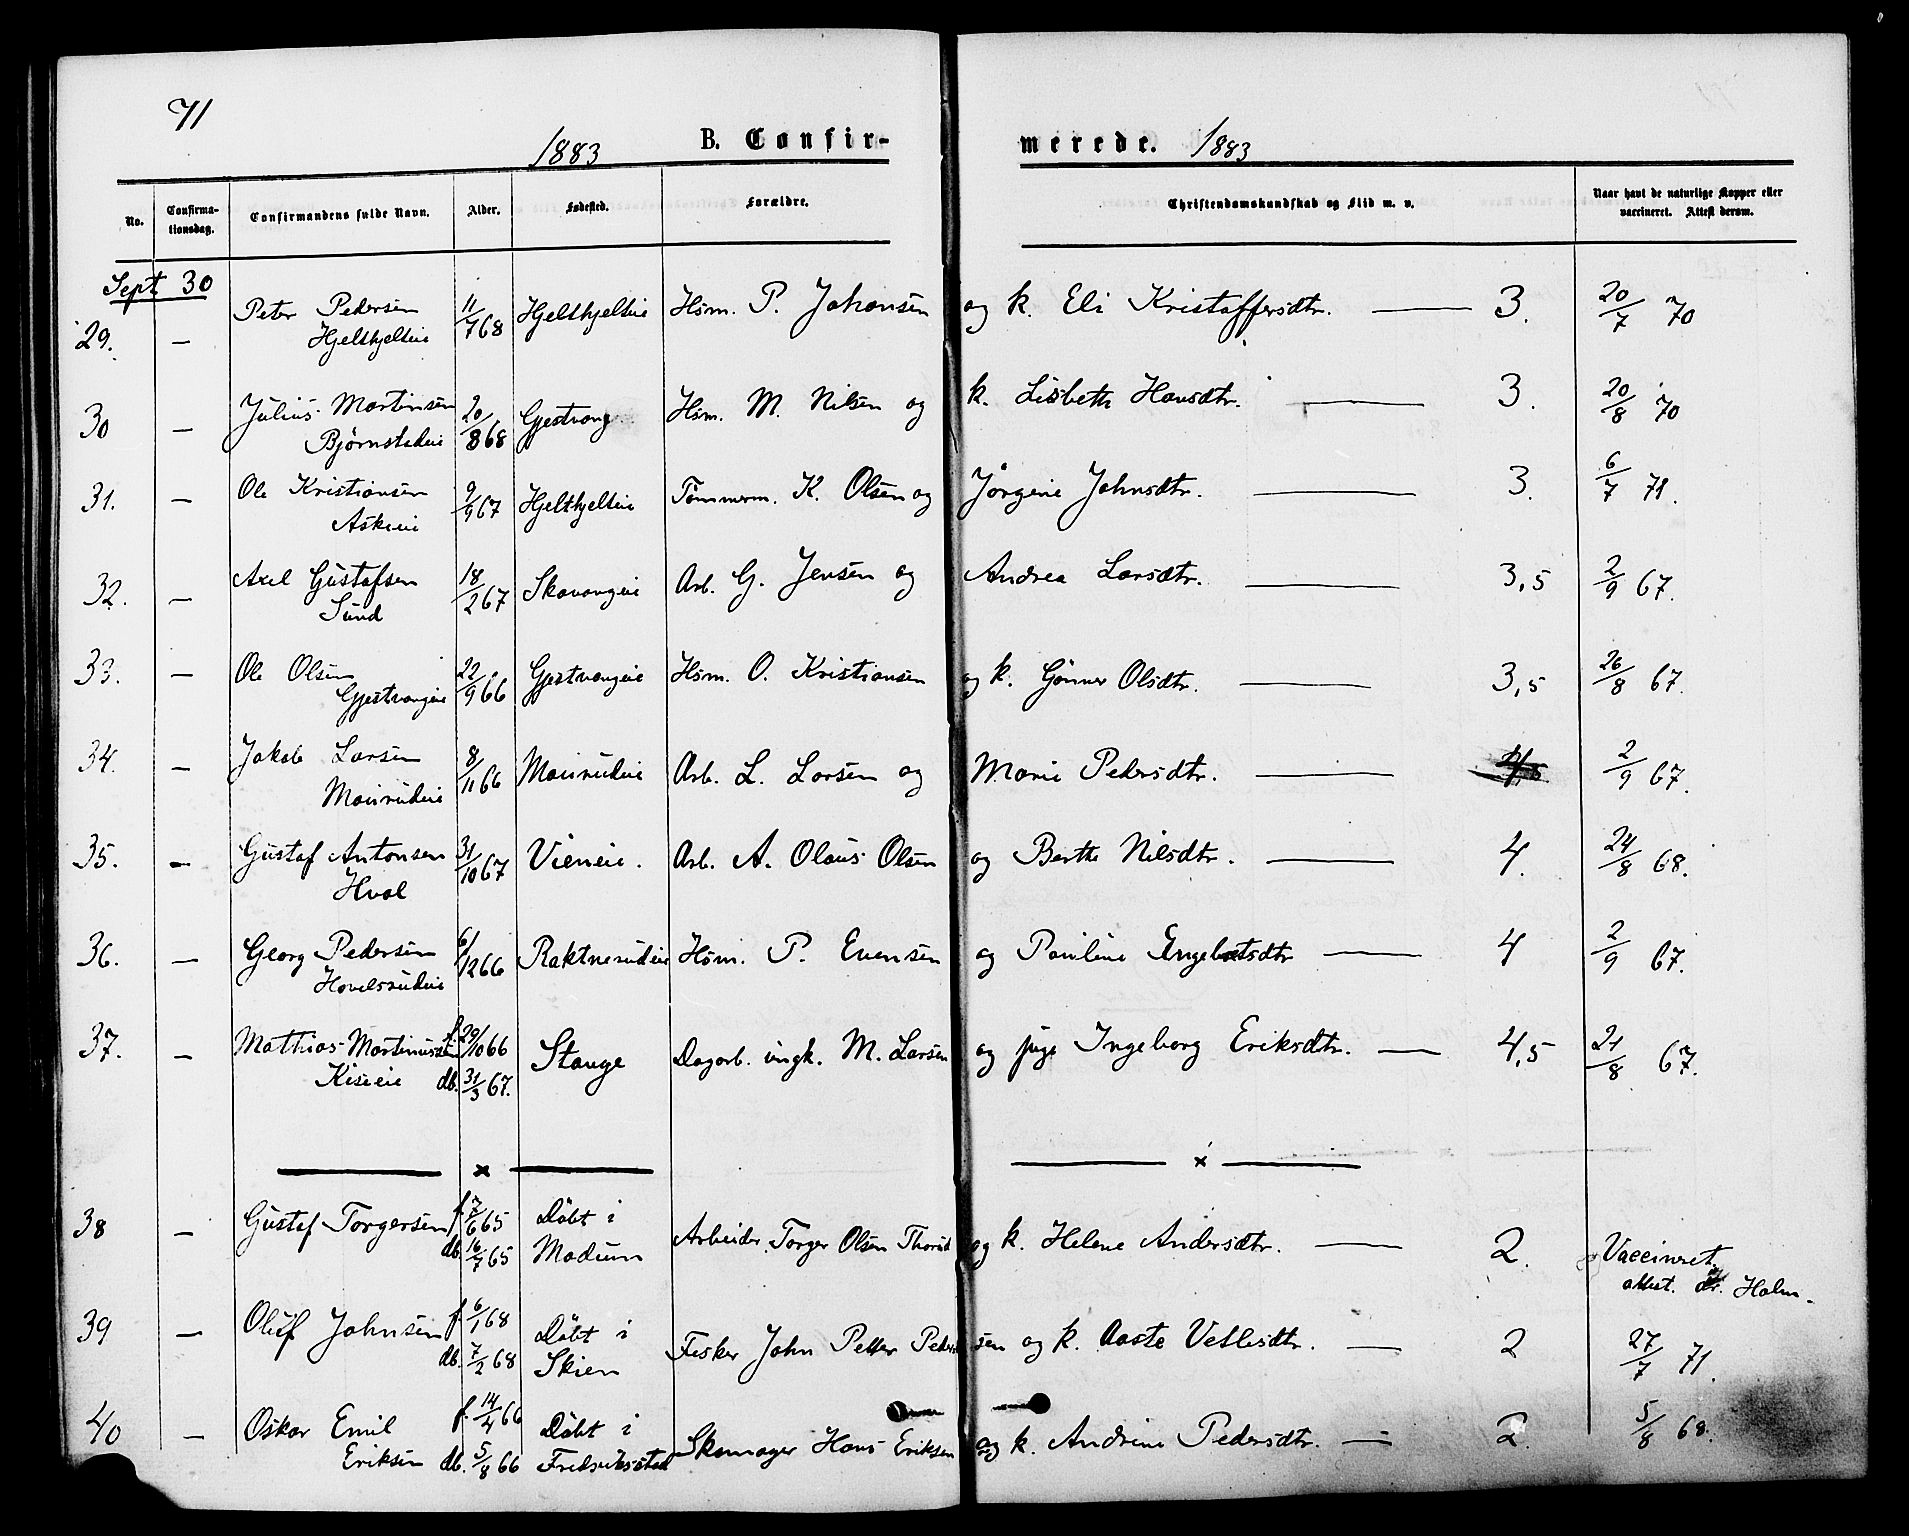 71
1883 B. Confir- merede. 1883
No. Confirma-tionsdag. Confirmandens fulde Navn. Alder. Fødested. Forældre. Christendomskundskab og Flid m. v. Naar havt de naturlige Kopper eller vaccineret. Attest derom.
Sept 30
29. — Peter Pedersen 11/7 68 Hjelthjelteie Hsm. P. Johansen og k. Eli Kristoffersdtr. — 3. 20/7 70
Hjelthjelteie
30 — Julius Martinsen 20/8 68 Gjestvang Hsm. M. Nilsen og k. Lisbeth Hansdtr. — 3. 20/8 70
Bjørnstadeie
31. — Ole Kristiansen 9/9 67 Hjelthjelteie Tømmerm. K. Olsen og Jørgine Johnsdtr. — 3. 6/7 71.
Askeie
32. — Axel Gustafsen 18/2 67 Skavangeie Arb. G. Jensen og Andrea Larsdtr. — 3,5 2/9 67.
Sund
33. — Ole Olsen 22/9 66 Gjestvangeie Hsm. O. Kristiansen og k. Gønner Olsdtr. — 3,5 26/8 67.
Gjestvangeie
34. — Jakob Larsen 8/11 66 Maurudeie Arb. L. Larsen og Marie Pedersdtr. — 2/9 67.
Maurudeie
35. — Gustaf Antonsen 31/10 67 Vieneie. Arb. A. Olaus Olsen og Berthe Nilsdtr. — 4. 24/8 68.
Hval
36. — Georg Pedersen 6/12 66 Raknerudeie Hsm. P. Evensen og Pauline Engebretsdtr — 4 2/9 67.
Hovelsrudeie
37. — Mathias Martinussen f. 29/10 66 Stange Dagarb. ungk. M. Larsen og pige Ingeborg Eriksdtr. — 4,5 21/8 67.
Kiseeie db. 31/3 67.
— x — — x —
38 — Gustaf Torgersen f. 7/6 65 Döbt i Arbeider Torger Olsen Thorud og k. Helene Andersdtr. — 2. Vaccineret.
db. 16/7 65 Modum attest. dr. Holm.
39 — Oluf Johnsen f. 6/1 68 Döbt i Fisker John Petter Pedersen og k. Aaste Vetlesdtr. — 2 27/7 71.
db. 7/2 68 Skien
40 — Oskar Emil f. 14/4 66 Döbt i Skomager Hans Eriksen og k. Andrine Pedersdtr. — 2. 5/8 68.
Eriksen db. 5/8 66 Fredrikstad